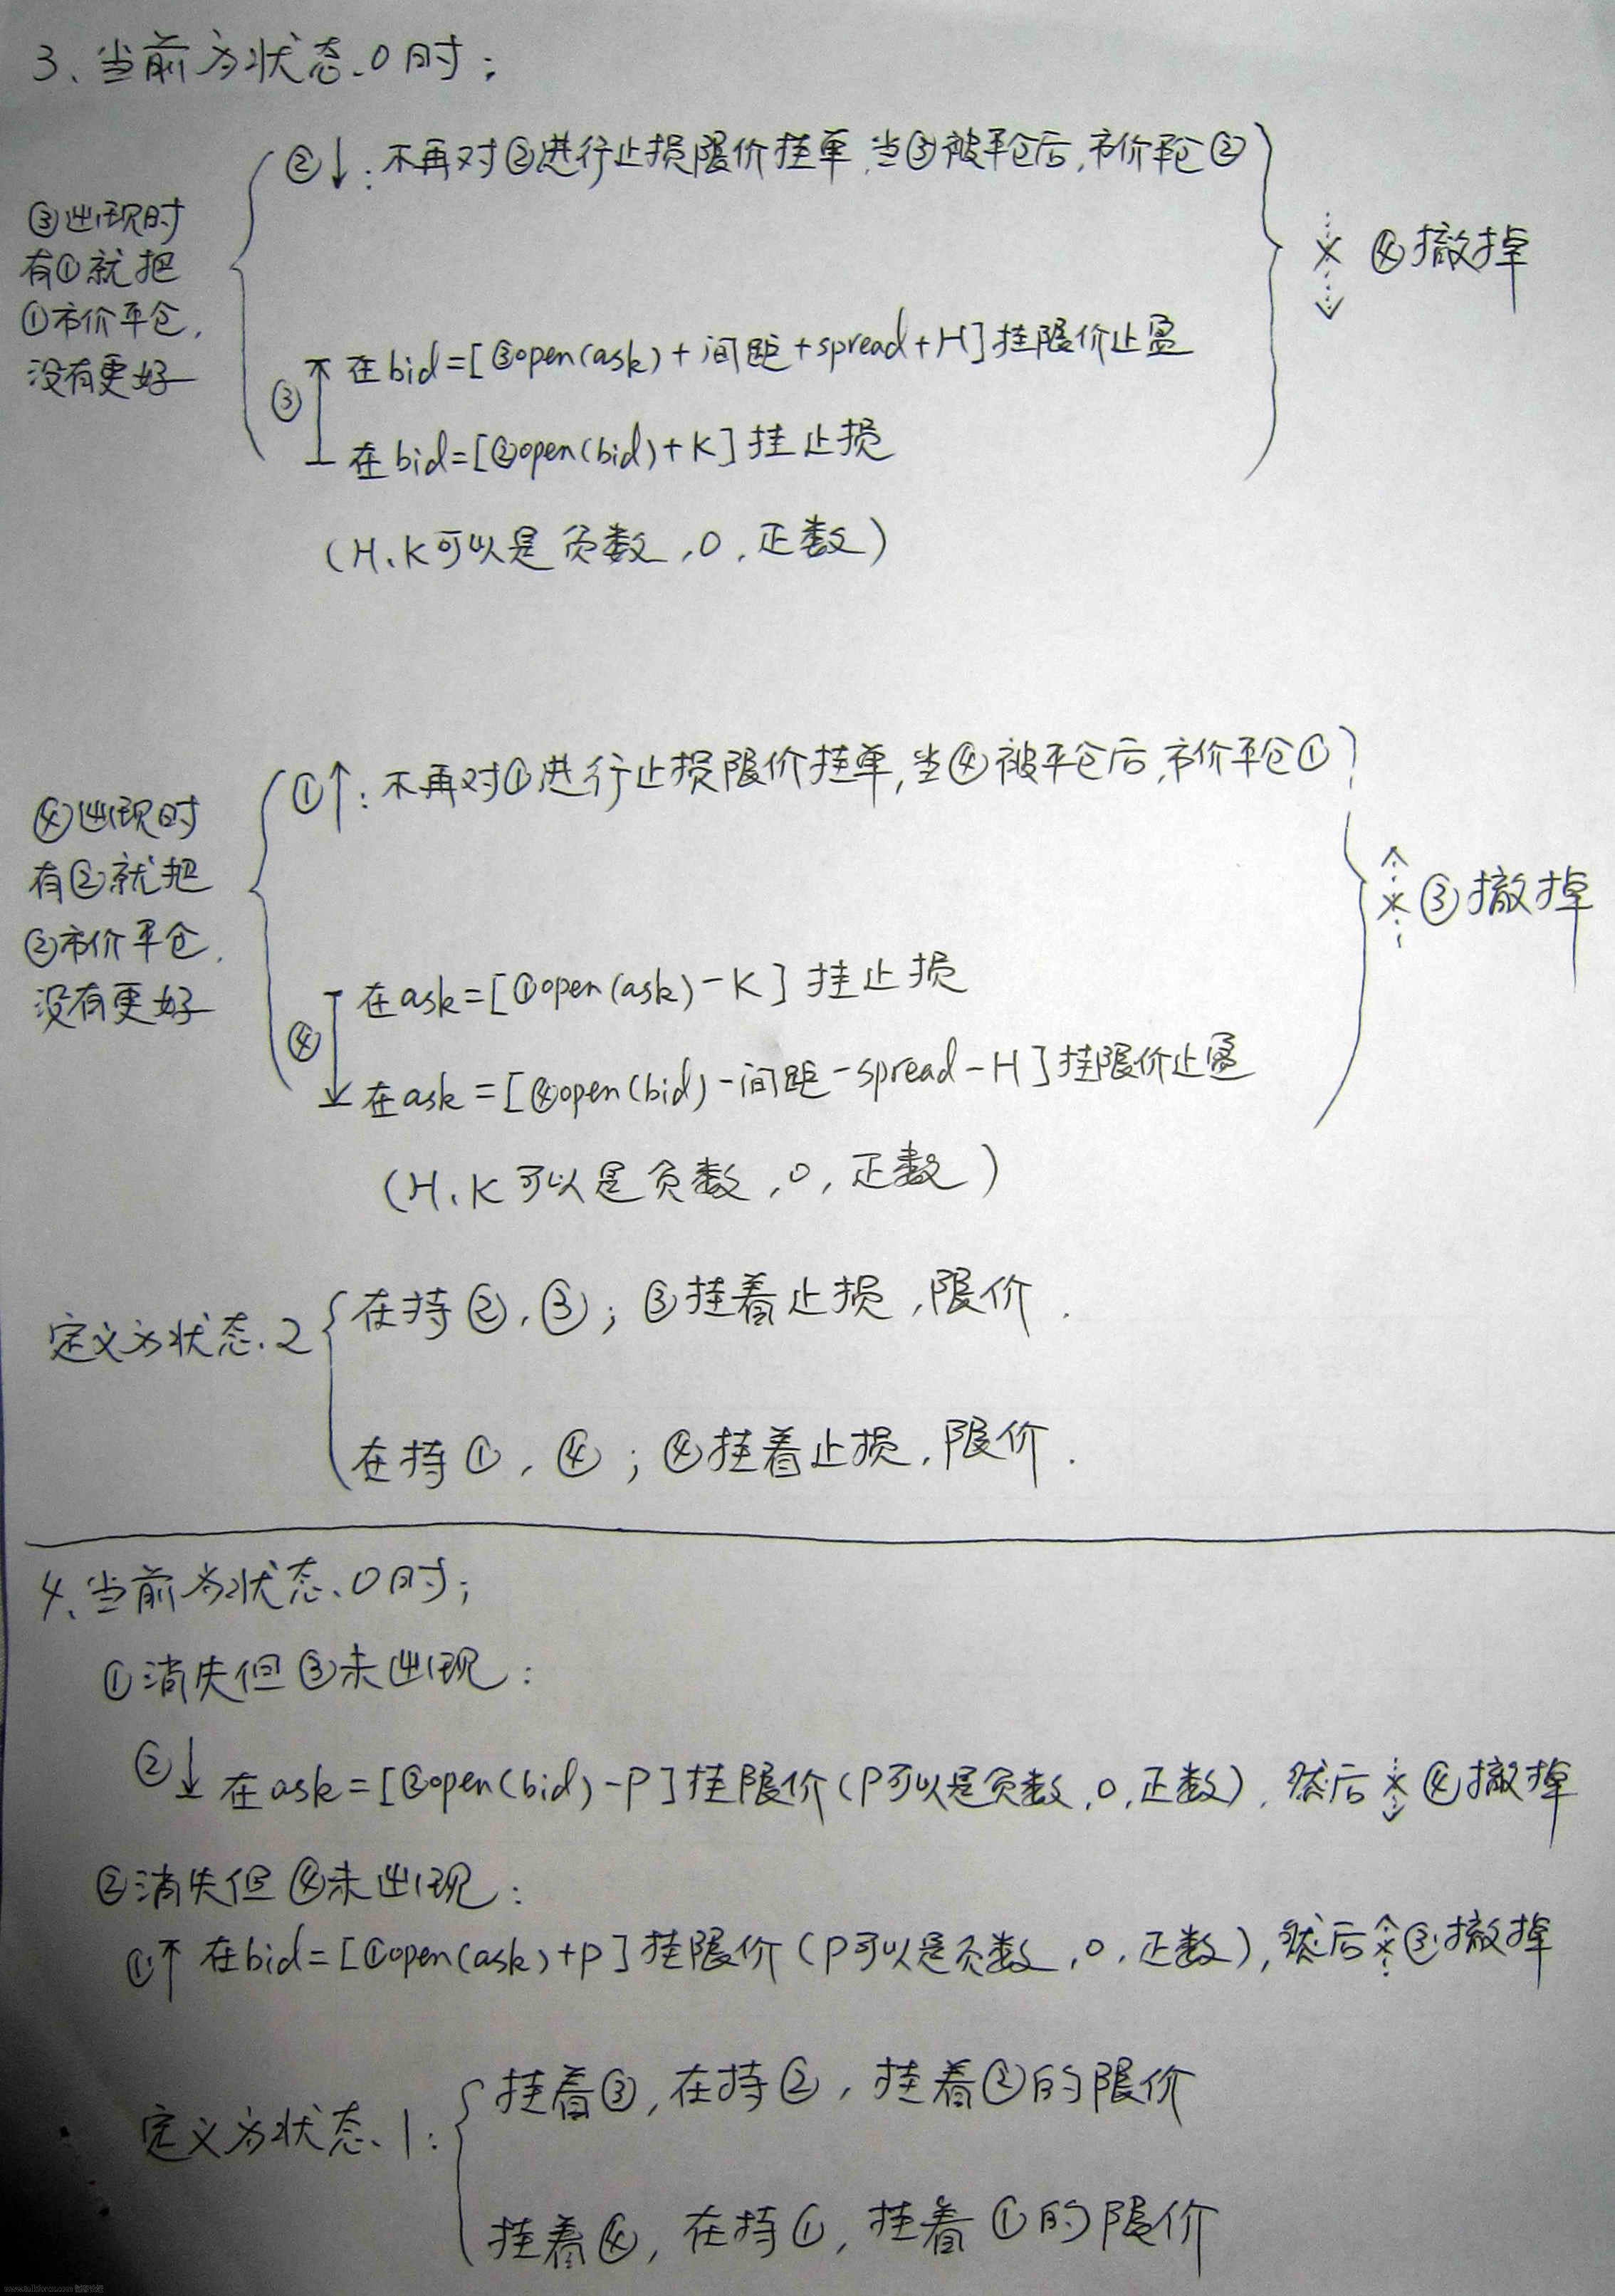 3、当前为状态、0时；
②↓：不再对②进行止损限价挂单，当③被平仓后，市价平仓②
③出现时
有①就把
①市价平仓，
没有更好
④撤掉
③
在bid=[③open(ask)+间距+spread+H]挂限价止盈
在bid=[②open(bid)+K]挂止损
（H、K可以是负数，0，正数）
①↑：不再对①进行止损限价挂单，当④被平仓后，市价平仓①
④出现时
有②就把
②市价平仓，
没有更好
③撤掉
④
在ask=[①open(ask)-K]挂止损
在ask=[④open(bid)-间距-spread-H]挂限价止盈
（H、K可以是负数，0，正数）
定义为状态、2
在持②，③；③挂着止损，限价．
在持①，④；④挂着止损，限价．
4、当前为状态、0时；
①消失但③未出现：
②↓在ask=[②open(bid)-P]挂限价（P可以是负数，0，正数），然后④撤掉
②消失但④未出现：
①↑在bid=[①open(ask)+P]挂限价（P可以是负数，0，正数），然后③撤掉
定义为状态、1：
挂着③，在持②，挂着②的限价
挂着④，在持①，挂着①的限价